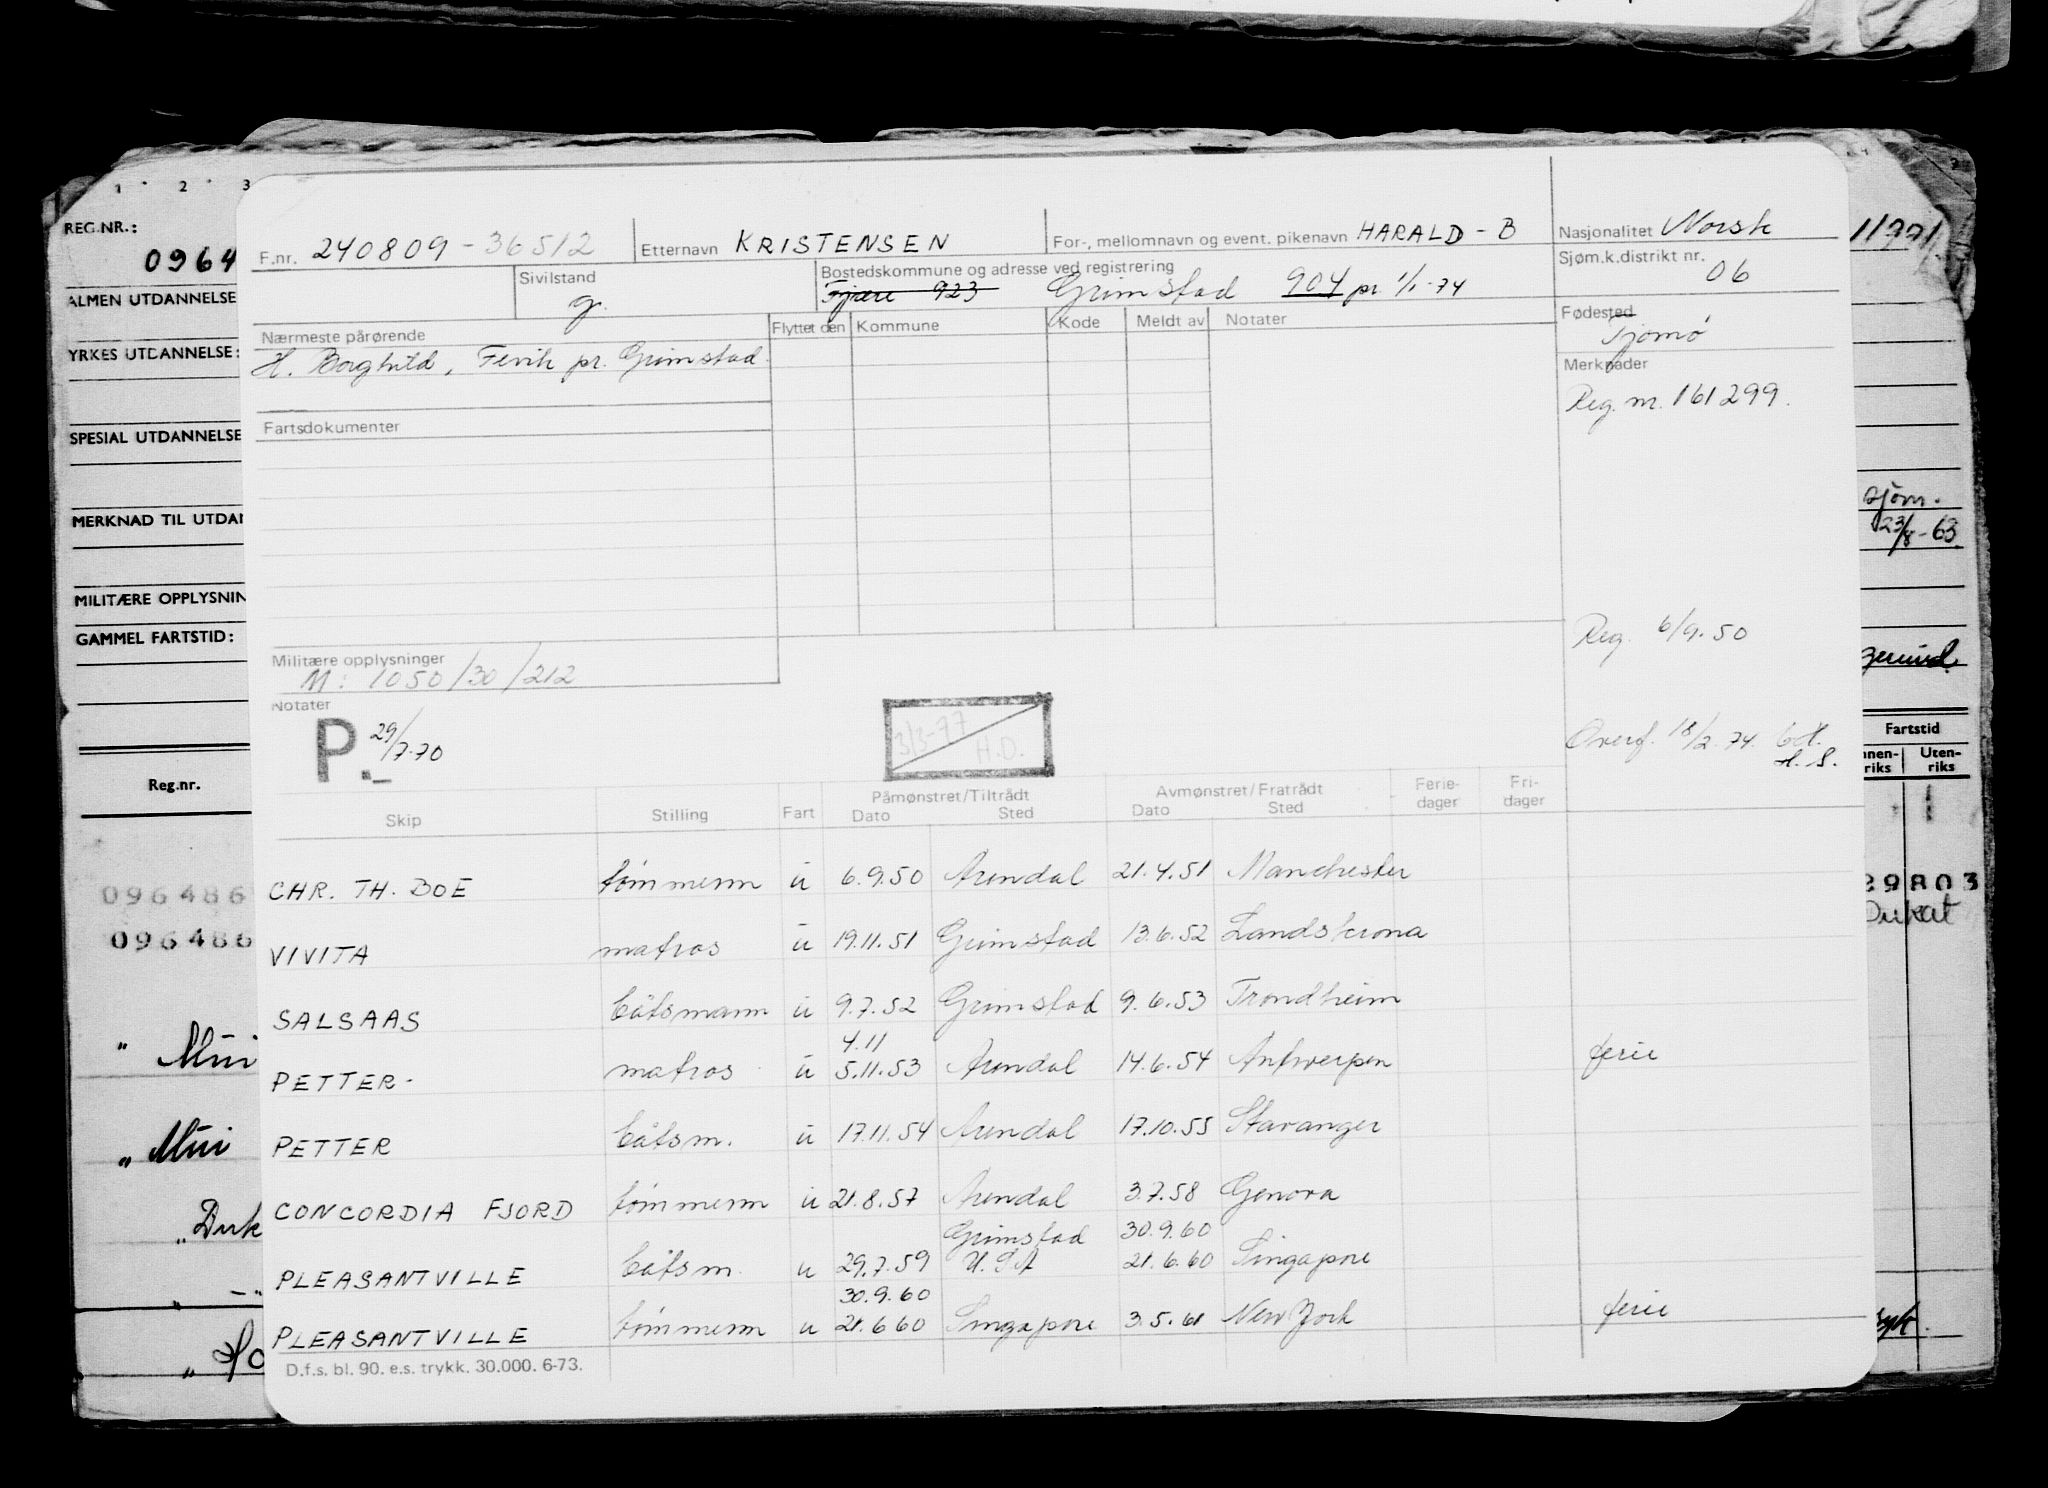 1 2 3
REG.NR.:
0964
ALMEN UTDANNELSE
YRKES UTDANNELSE:
SPESIAL UTDANNELSE
MERKNAD TIL UTDAN
MILITÆRE OPPLYSNIN
GAMMEL FARTSTID:
Reg.nr.
096486
096486
" Mui
" Mui
" Duk
" -"
F.nr. 240809-36512 Etternavn KRISTENSEN For-, mellomnavn og event. pikenavn HARALD - B Nasjonalitet Norsk
Sivilstand g. Bostedskommune og adresse ved registrering Fjære 923 Grimstad 904 pr. 1/1-74 Sjøm.k.distrikt nr. 06
Nærmeste pårørende Flyttet den Kommune Kode Meldt av Notater Fødested Tjømø
H. Borghild, Fevik pr. Grimstad.
Merknader
Reg. nr. 161299.
Fartsdokumenter
Reg. 6/9.50
Militære opplysninger
M: 1050/30/212
Notater
P. 29/7-70
3/3-77 H.D.
Overf. 18/2.74.
Skip Stilling Fart Påmønstret/Tiltrådt Dato Sted Avmønstret/Fratrådt Dato Sted Ferie-dager Fri-dager
CHR. TH. BOE tømmerm u 6.9.50 Arendal 21.4.51 Manchester
VIVITA matros u 19.11.51 Grimstad 13.6.52 Landskrona
SALSAAS båtsmann u 9.7.52 Grimstad 9.6.53 Trondheim
4.11
PETTER- matros u 5.11.53 Arendal 14.6.54 Antwerpen ferie
PETTER båtsm. u 17.11.54 Arendal 17.10.55 Stavanger
CONCORDIA FJORD tømmerm u 21.8.57 Arendal 3.7.58 Genova
Grimstad 30.9.60
PLEASANTVILLE båtsm. u 29.7.59 U.S.A 21.6.60 Singapore
30.9.60
PLEASANTVILLE tømmerm u 21.6.60 Singapore 3.5.61 New York ferie
D.f.s. bl. 90. e.s. trykk. 30.000. 6-73.
sjøm.
23/8-63
Fartstid
Innen-riks Uten-riks
29803
Dukat